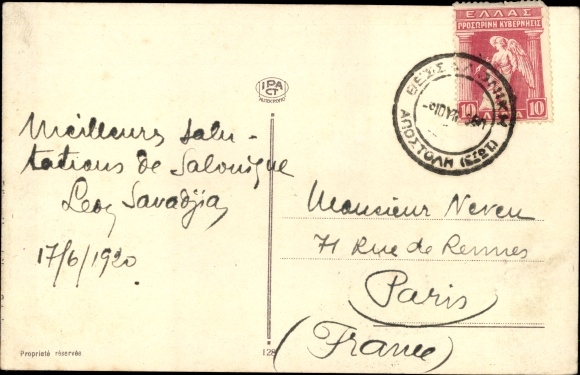 ΕΛΛΑΣ
ΠΡΟΣΩΡΙΝΗ ΚΥΒΕΡΝΗΣΙΣ
10 10
ΘΕΣΣΑΛΟΝΙΚΗ
ΑΠΟΣΤΟΛΗ
IPA
CT
AUTOCHROM
Meilleurs salu-
tations de Salonique
Leon
17/6/1920
Monsieur Neveu
71 Rue de Rennes
Paris
(France)
Propriété réservée
128